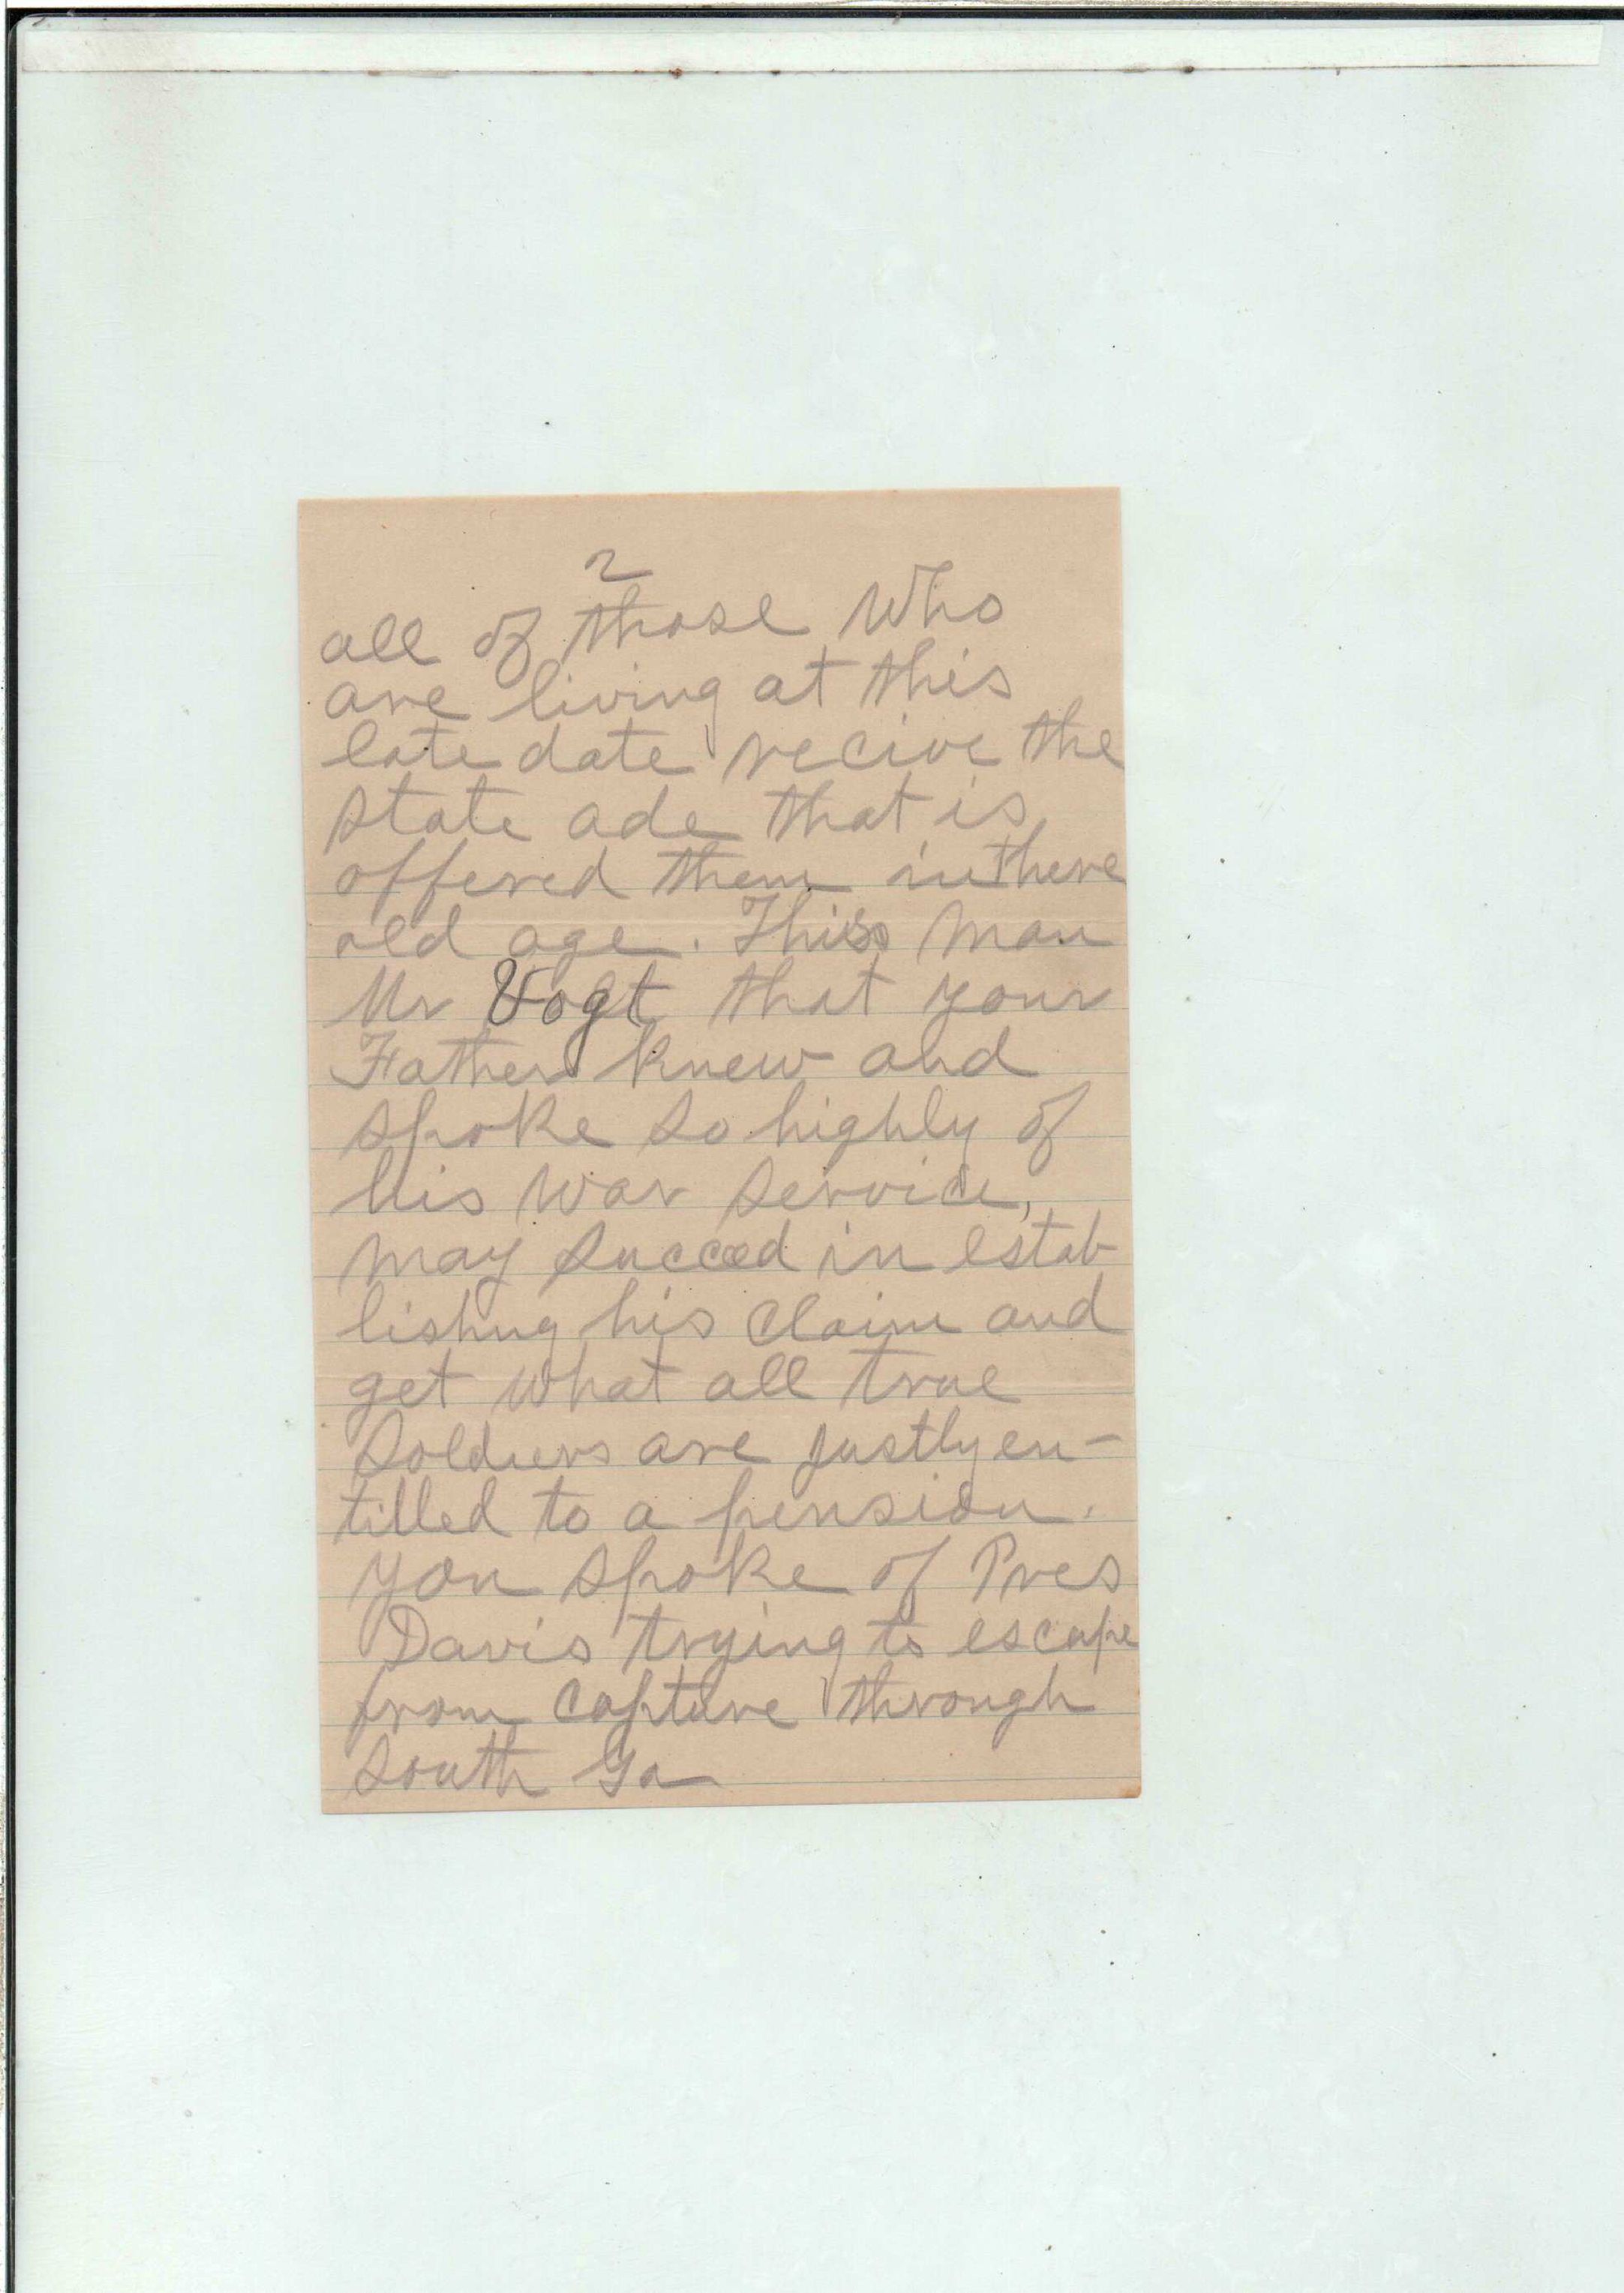 2
all of those who
are living at this
late date recive the
state ade that is
offered them in there
old age. This man
Mr Vogt that your
Father knew and
spoke so highly of
his war service,
may succeed in estab
lishng his claim and
get what all true
Soldiers are justly en-
titled to a pension.
you spoke of Pres
Davis trying to escape
from capture through
South Ga